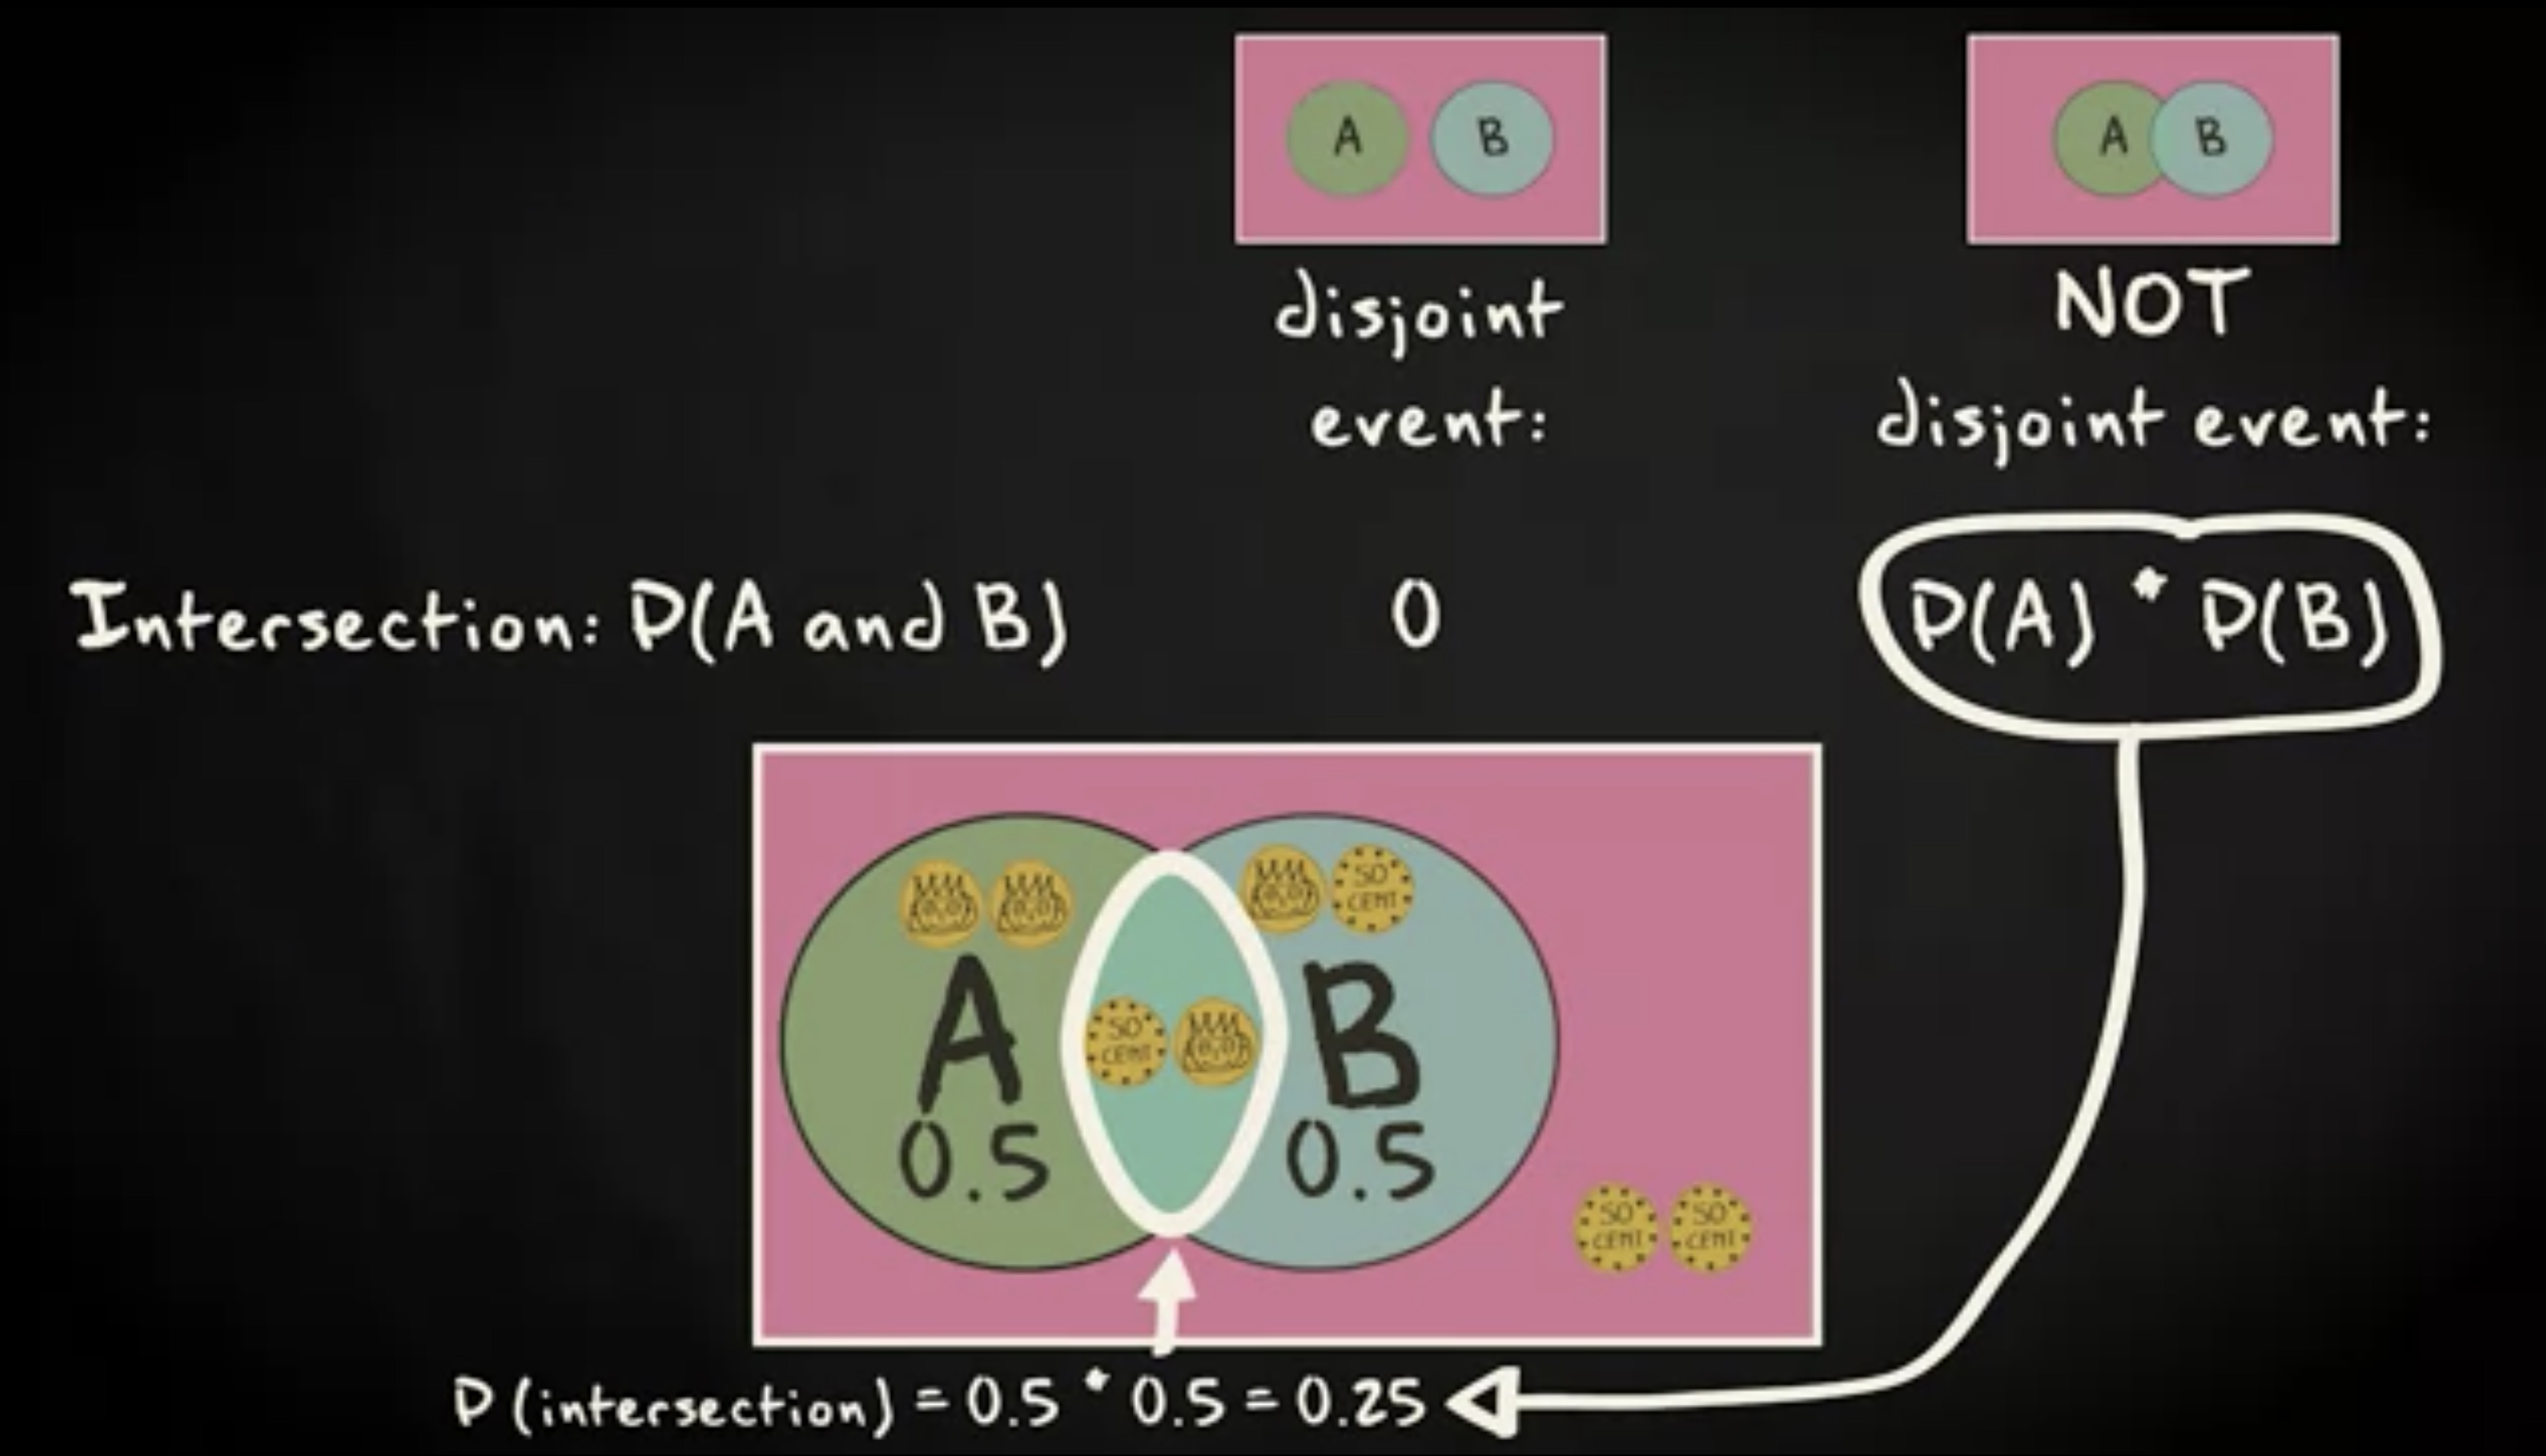 A B
A B
disjoint
event:
NOT
disjoint event:
Intersection: P(A and B) 0 P(A) * P(B)
50 CENT
50 CENT
A B
0.5 0.5
50 CENT 50 CENT
P (intersection) = 0.5 * 0.5 = 0.25